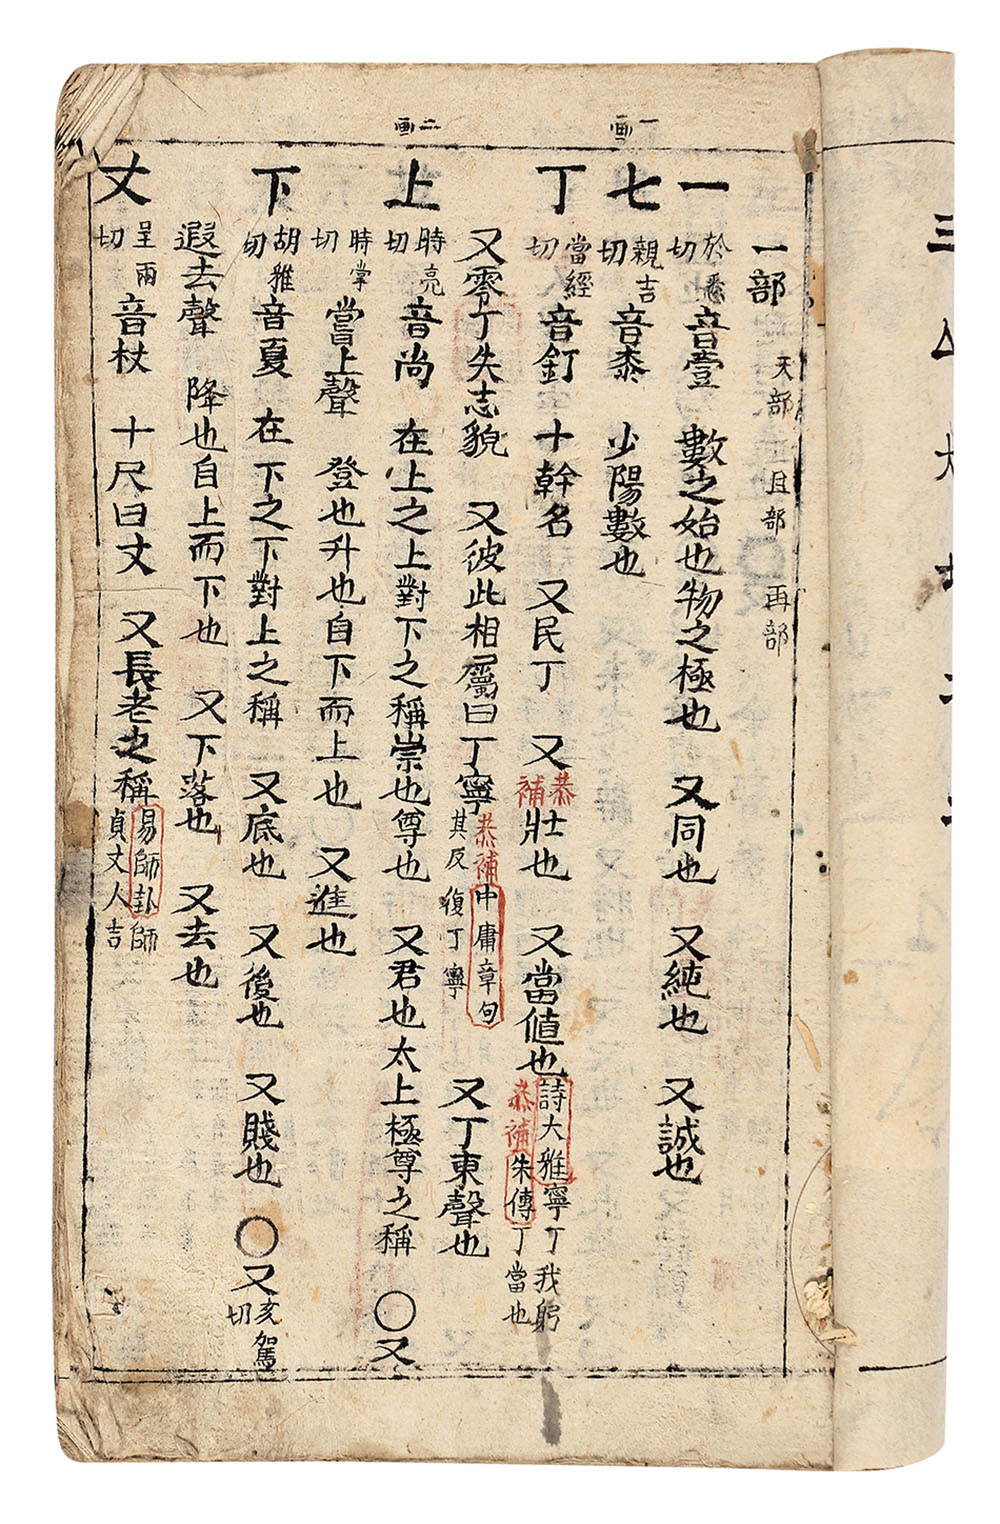 一画
二画
一部 天部 且部 再部
一 於悉切 音壹 數之始也物之極也 又同也 又純也 又誠也
七 親吉切 音桼 少陽數也
丁 當經切 音釘 十幹名 又民丁 又恭補壯也 又當値也 詩大雅寧丁我躬 恭補朱傳丁當也
又零丁失志貌 又彼此相屬曰丁寧 恭補中庸章句其反復丁寧 又丁東聲也
上 時亮切 音尚 在上之上對下之稱崇也尊也 又君也太上極尊之稱 〇又
時掌切 嘗上聲 登也升也自下而上也 又進也
下 胡雅切 音夏 在下之下對上之稱 又底也 又後也 又賤也 〇又亥駕切
遐去聲 降也自上而下也 又下落也 又去也
丈 呈兩切 音杖 十尺曰丈 又長老之稱 易師卦師貞丈人吉